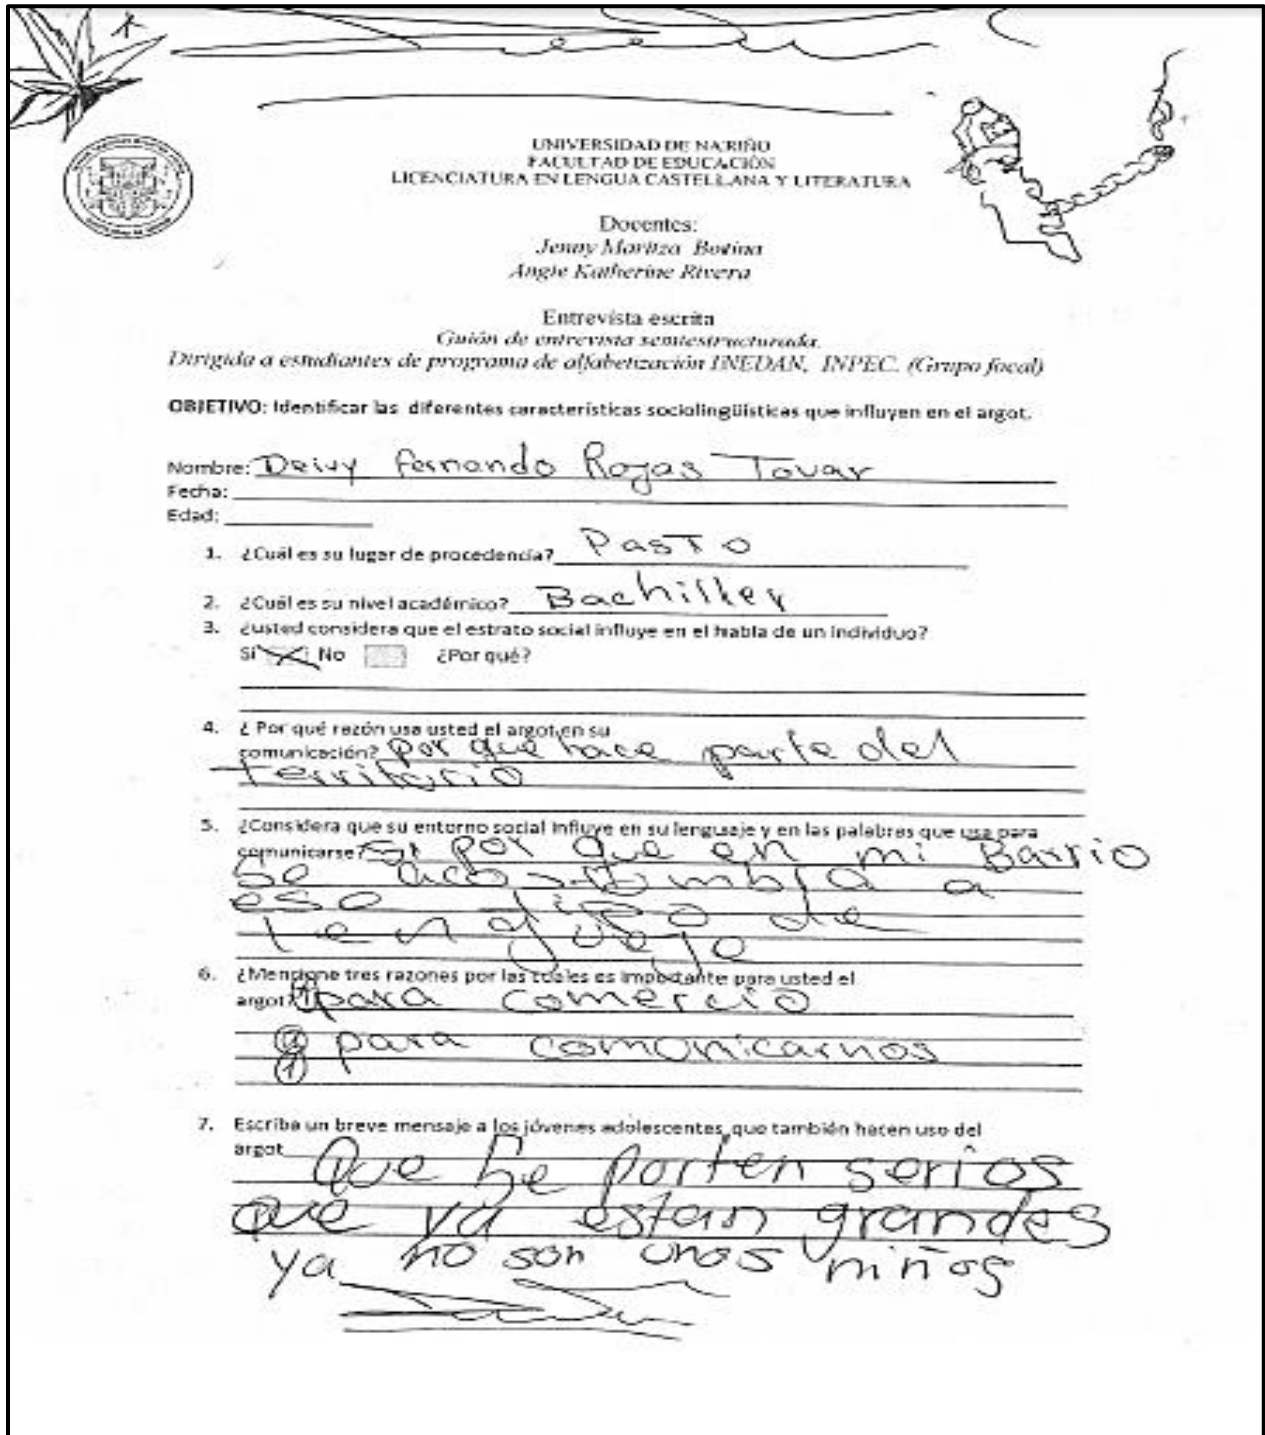 UNIVERSIDAD DE NARIÑO
FACULTAD DE EDUCACIÓN
LICENCIATURA EN LENGUA CASTELLANA Y LITERATURA
Docentes:
Jenny Maritza Botina
Angie Katherine Rivera
Entrevista escrita
Guión de entrevista semiestructurada.
Dirigida a estudiantes de programa de alfabetización INEDAN, INPEC. (Grupo focal)
OBJETIVO: Identificar las diferentes características sociolingüísticas que influyen en el argot.
Nombre: Deivy fernando Rojas Tovar
Fecha:
Edad:
1. ¿Cuál es su lugar de procedencia? PasTo
2. ¿Cuál es su nivel académico? Bachiller
3. ¿usted considera que el estrato social influye en el habla de un individuo?
Si No ¿Por qué?
4. ¿ Por qué razón usa usted el argot en su
comunicación? por que hace parte del
territorio
5. ¿Considera que su entorno social influye en su lenguaje y en las palabras que usa para
comunicarse? Si por que en mi Barrio
Se acostombra a
ese tipo de
lenguaje
6. ¿Mencione tres razones por las cuales es importante para usted el
argot? 1 para comercio
para comunicarnos
7. Escriba un breve mensaje a los jóvenes adolescentes, que también hacen uso del
argot Que se porten serios
que ya estan grandes
ya no son unos niños